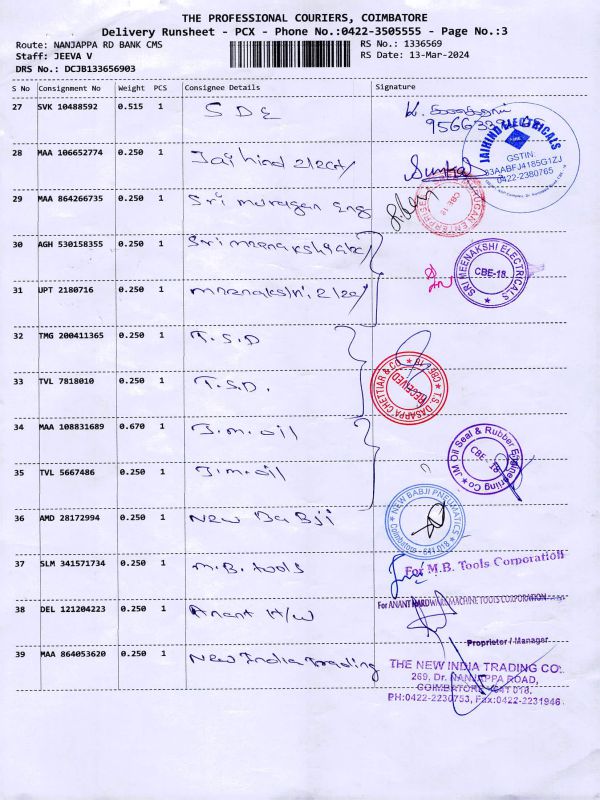 THE PROFESSIONAL COURIERS, COIMBATORE
Delivery Runsheet - PCX - Phone No.:0422-3505555 - Page No.:3
Route: NANJAPPA RD BANK CMS
RS No.: 1336569
Staff: JEEVA V
RS Date: 13-Mar-2024
DRS No.: DCJB133656903
S No Consignment No Weight PCS Consignee Details Signature
27 SVK 10488592 0.515 1 S D E K.
28 MAA 106652774 0.250 1 Jai hind
JAIHIND ELECTRICALS
GSTIN:
33AABFJ4185G1ZJ
0422-2380765
29 MAA 864266735 0.250 1 Sri murugan eng
CBE 18
30 AGH 530158355 0.250 1 Sri
SRI MEENAKSHI ELECTRICALS
CBE-18.
31 UPT 2180716 0.250 1
32 TMG 200411365 0.250 1 T.S.D
33 TVL 7818010 0.250 1 T.S.D.
T.S. DASAPPA CHETTIAR & CO.
RECEIVED
34 MAA 108831689 0.670 1 J.m.oil
JM Oil Seal & Rubber Engineering Co.
CBE - 18
35 TVL 5667486 0.250 1 J.m.oil
36 AMD 28172994 0.250 1 New Babji
NEW BABJI PNEUMATICS
Coimbatore - 641 018
37 SLM 341571734 0.250 1 M.B. tools
For M.B. Tools Corporation
38 DEL 121204223 0.250 1 Anant H/w
For ANANT HARDWARE MACHINE TOOLS CORPORATION
Proprietor / Manager
39 MAA 864053620 0.250 1 New India Trading
THE NEW INDIA TRADING CO.
269, Dr. NANJAPPA ROAD,
COIMBATORE - 641 018.
PH:0422-2230753, Fax:0422-2231946